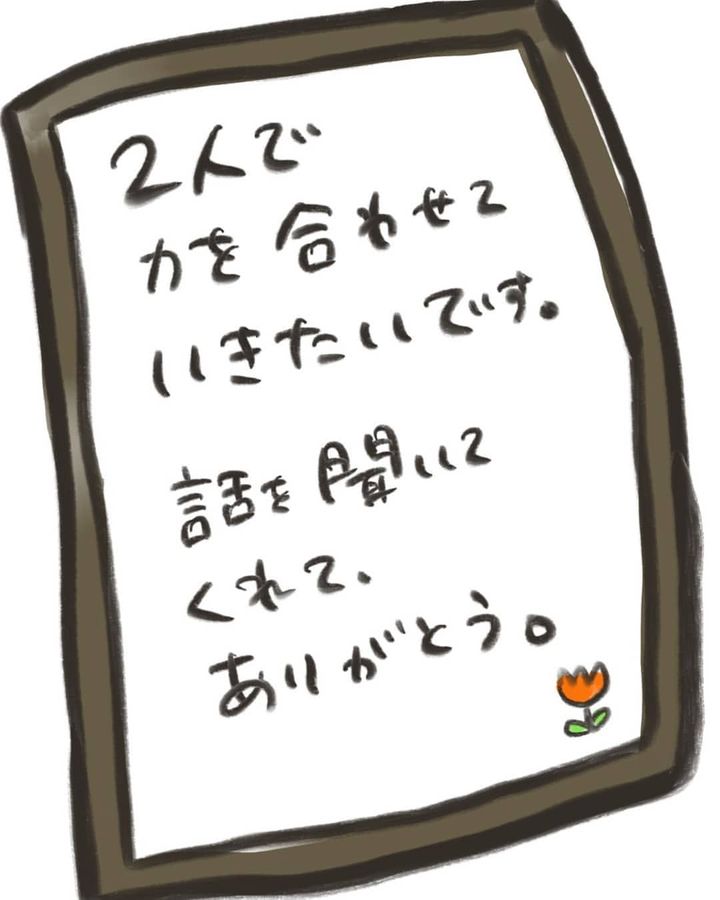 2人で
力を合わせて
いきたいです。
話を聞いて
くれて、
ありがとう。